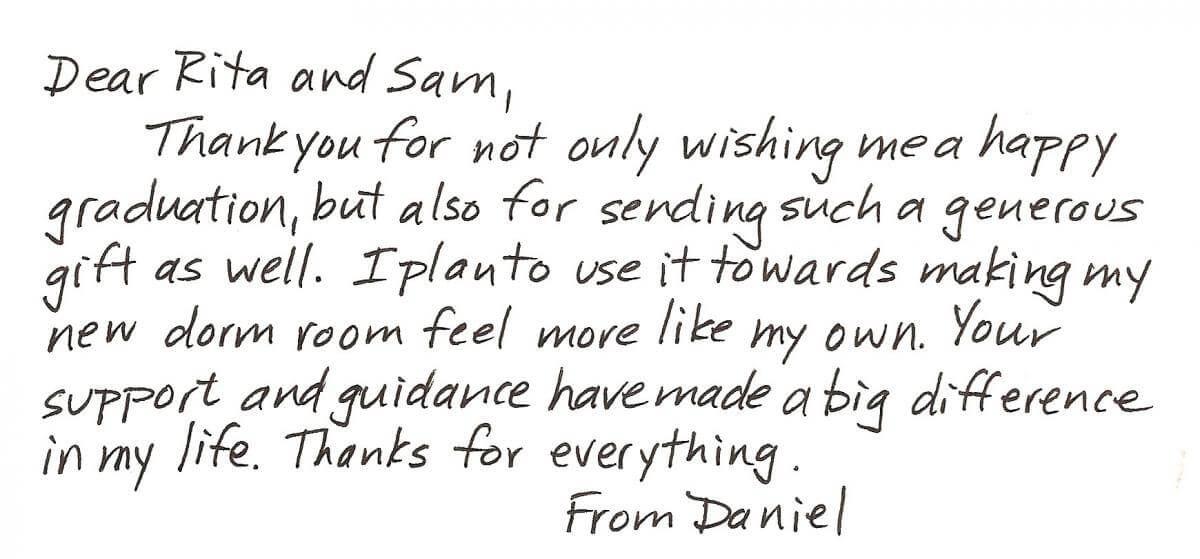 Dear Rita and Sam,
Thank you for not only wishing me a happy
graduation, but also for sending such a generous
gift as well. I plan to use it towards making my
new dorm room feel more like my own. Your
support and guidance have made a big difference
in my life. Thanks for everything.
From Daniel